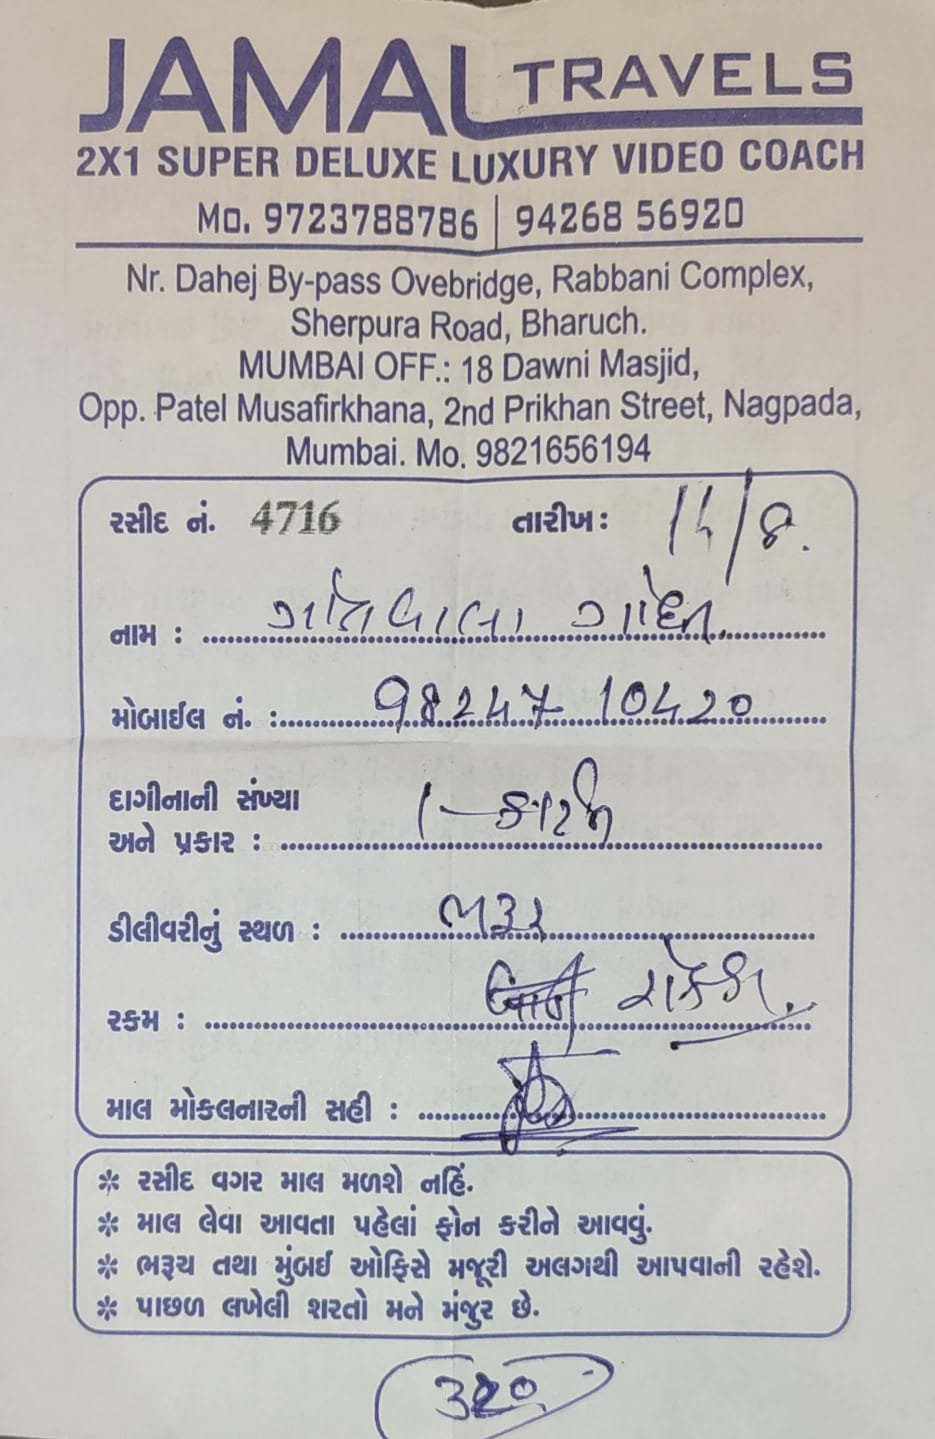 JAMAL TRAVELS
2X1 SUPER DELUXE LUXURY VIDEO COACH
Mo. 9723788786 | 94268 56920
Nr. Dahej By-pass Ovebridge, Rabbani Complex,
Sherpura Road, Bharuch.
MUMBAI OFF.: 18 Dawni Masjid,
Opp. Patel Musafirkhana, 2nd Prikhan Street, Nagpada,
Mumbai. Mo. 9821656194
રસીદ નં. 4716 તારીખ:
નામ :
મોબાઈલ નં. : 98247 10420
દાગીનાની સંખ્યા
અને પ્રકાર : 1 -
ડીલીવરીનું સ્થળ :
રકમ :
માલ મોકલનારની સહી :
* રસીદ વગર માલ મળશે નહિં.
* માલ લેવા આવતા પહેલાં ફોન કરીને આવવું.
* ભરૂચ તથા મુંબઈ ઓફિસે મજૂરી અલગથી આપવાની રહેશે.
* પાછળ લખેલી શરતો મને મંજુર છે.